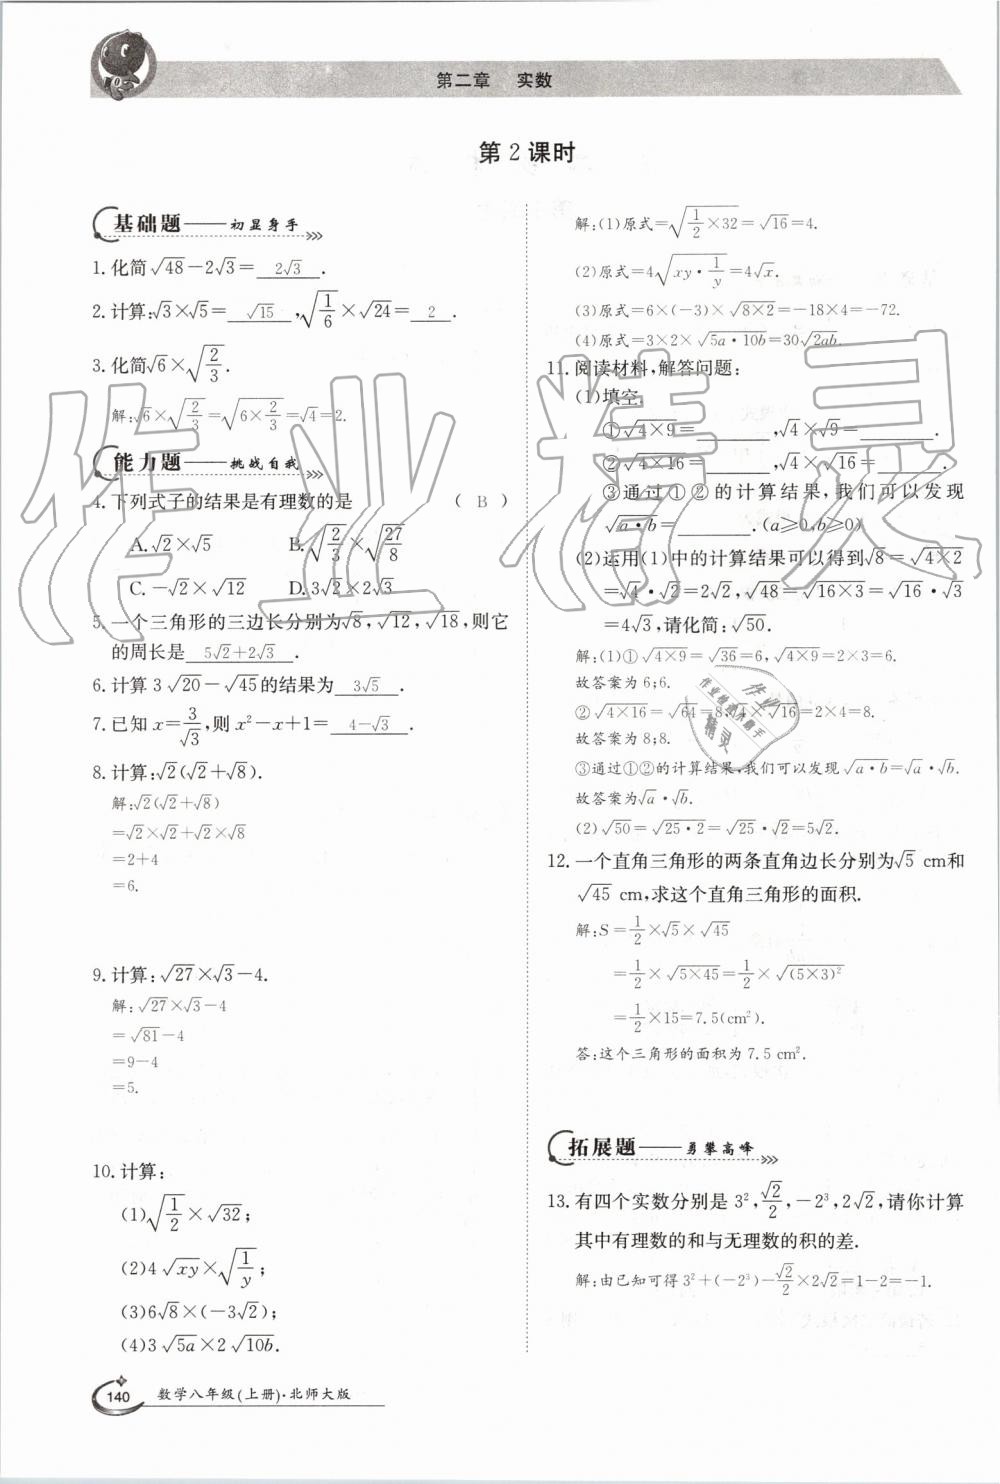 第二章 实数
第 2 课时
基础题——初显身手
1. 化简√48-2√3= 2√3 .
2. 计算:√3×√5= √15 ,√(1/6)×√24= 2 .
3. 化简√6×√(2/3).
解:√6×√(2/3)=√(6×2/3)=√4=2.
能力题——挑战自我
4. 下列式子的结果是有理数的是 ( B )
A. √2×√5 B. √(2/3)×√(27/8)
C. -√2×√12 D. 3√2×2√3
5. 一个三角形的三边长分别为√8,√12,√18,则它
的周长是 5√2+2√3 .
6. 计算 3√20-√45的结果为 3√5 .
7. 已知 x=3/√3,则 x²-x+1= 4-√3 .
8. 计算:√2(√2+√8).
解:√2(√2+√8)
=√2×√2+√2×√8
=2+4
=6.
9. 计算:√27×√3-4.
解:√27×√3-4
=√81-4
=9-4
=5.
10. 计算:
(1)√(1/2)×√32;
(2)4√xy×√(1/y);
(3)6√8×(-3√2);
(4)3√5a×2√10b.
解:(1)原式=√(1/2×32)=√16=4.
(2)原式=4√(xy·1/y)=4√x.
(3)原式=6×(-3)×√(8×2)=-18×4=-72.
(4)原式=3×2×√(5a·10b)=30√2ab.
11. 阅读材料,解答问题:
(1)填空:
①√(4×9)=______,√4×√9=______.
②√(4×16)=______,√4×√16=______.
③通过①②的计算结果,我们可以发现
√(a·b)=______.(a≥0,b≥0)
(2)运用(1)中的计算结果可以得到√8=√(4×2)
=√4·√2=2√2,√48=√(16×3)=√16·√3
=4√3,请化简:√50.
解:(1)①√(4×9)=√36=6,√(4×9)=2×3=6.
故答案为 6;6.
②√(4×16)=√64=8,√4×√16=2×4=8.
故答案为 8;8.
③通过①②的计算结果,我们可以发现√(a·b)=√a·√b.
故答案为√a·√b.
(2)√50=√(25·2)=√25·√2=5√2.
12. 一个直角三角形的两条直角边长分别为√5 cm和
√45 cm,求这个直角三角形的面积.
解:S=1/2×√5×√45
=1/2×√(5×45)=1/2×√((5×3)²)
=1/2×15=7.5(cm²).
答:这个三角形的面积为 7.5 cm².
拓展题——勇攀高峰
13. 有四个实数分别是 3²,√2/2,-2³,2√2,请你计算
其中有理数的和与无理数的积的差.
解:由已知可得 3²+(-2³)-√2/2×2√2=1-2=-1.
140 数学八年级(上册)·北师大版
作业精灵